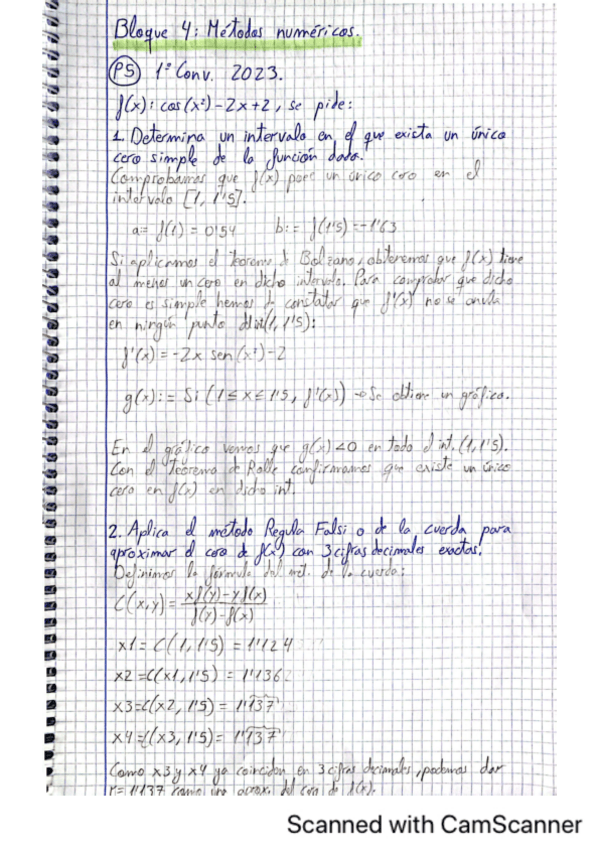 Bloque 4: Métodos numéricos.
P5) 1ª Conv. 2023.
f(x): cos(x²)-2x+2, se pide:
1. Determina un intervalo en el que exista un único
cero simple de la función dada.
Comprobamos que f(x) posee un único cero en el
intervalo [1, 1'5].
a:= f(1) = 0'54 b:= f(1'5) = -1'63
Si aplicamos el teorema de Bolzano, obtenemos que f(x) tiene
al menos un cero en dicho intervalo. Para comprobar que dicho
cero es simple hemos de constatar que f'(x) no se anula
en ningún punto del int(1, 1'5):
f'(x) = -2x sen(x²)-2
g(x):= Si(1≤x≤1'5, f'(x)) → Se obtiene un gráfico.
En el gráfico vemos que g(x)<0 en todo el int. (1, 1'5).
Con el Teorema de Rolle confirmamos que existe un único
cero en f(x) en dicho int.
2. Aplica el método Regula Falsi o de la cuerda para
aproximar el cero de f(x) con 3 cifras decimales exactas.
Definimos la fórmula del mét. de la cuerda:
C(x,y) = xf(y)-yf(x) / f(y)-f(x)
x1 = C(1, 1'5) = 1'124
x2 = C(x1, 1'5) = 1'136
x3 = C(x2, 1'5) = 1'137
x4 = C(x3, 1'5) = 1'137
Como x3 y x4 ya coinciden en 3 cifras decimales, podemos dar
r = 1'137 como una aprox. del cero de f(x).
Scanned with CamScanner